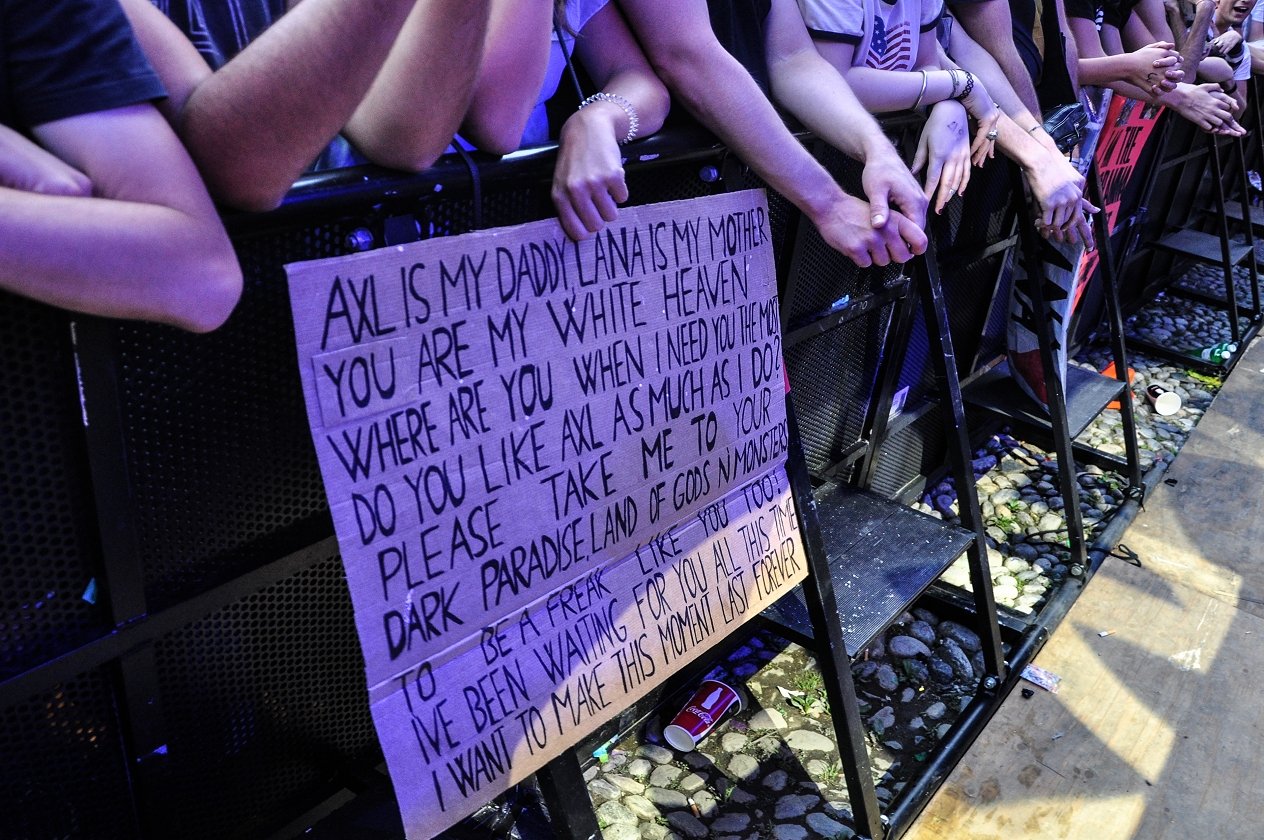 AXL IS MY DADDY, LANA IS MY MOTHER
YOU ARE MY WHITE HEAVEN
WHERE ARE YOU WHEN I NEED YOU THE MOST
DO YOU LIKE AXL AS MUCH AS I DO?
PLEASE TAKE ME TO YOUR
DARK PARADISE, LAND OF GODS N MONSTERS
TO BE A FREAK LIKE YOU TOO!
IVE BEEN WAITING FOR YOU ALL THIS TIME
I WANT TO MAKE THIS MOMENT LAST FOREVER
IN THE
Coca-Cola